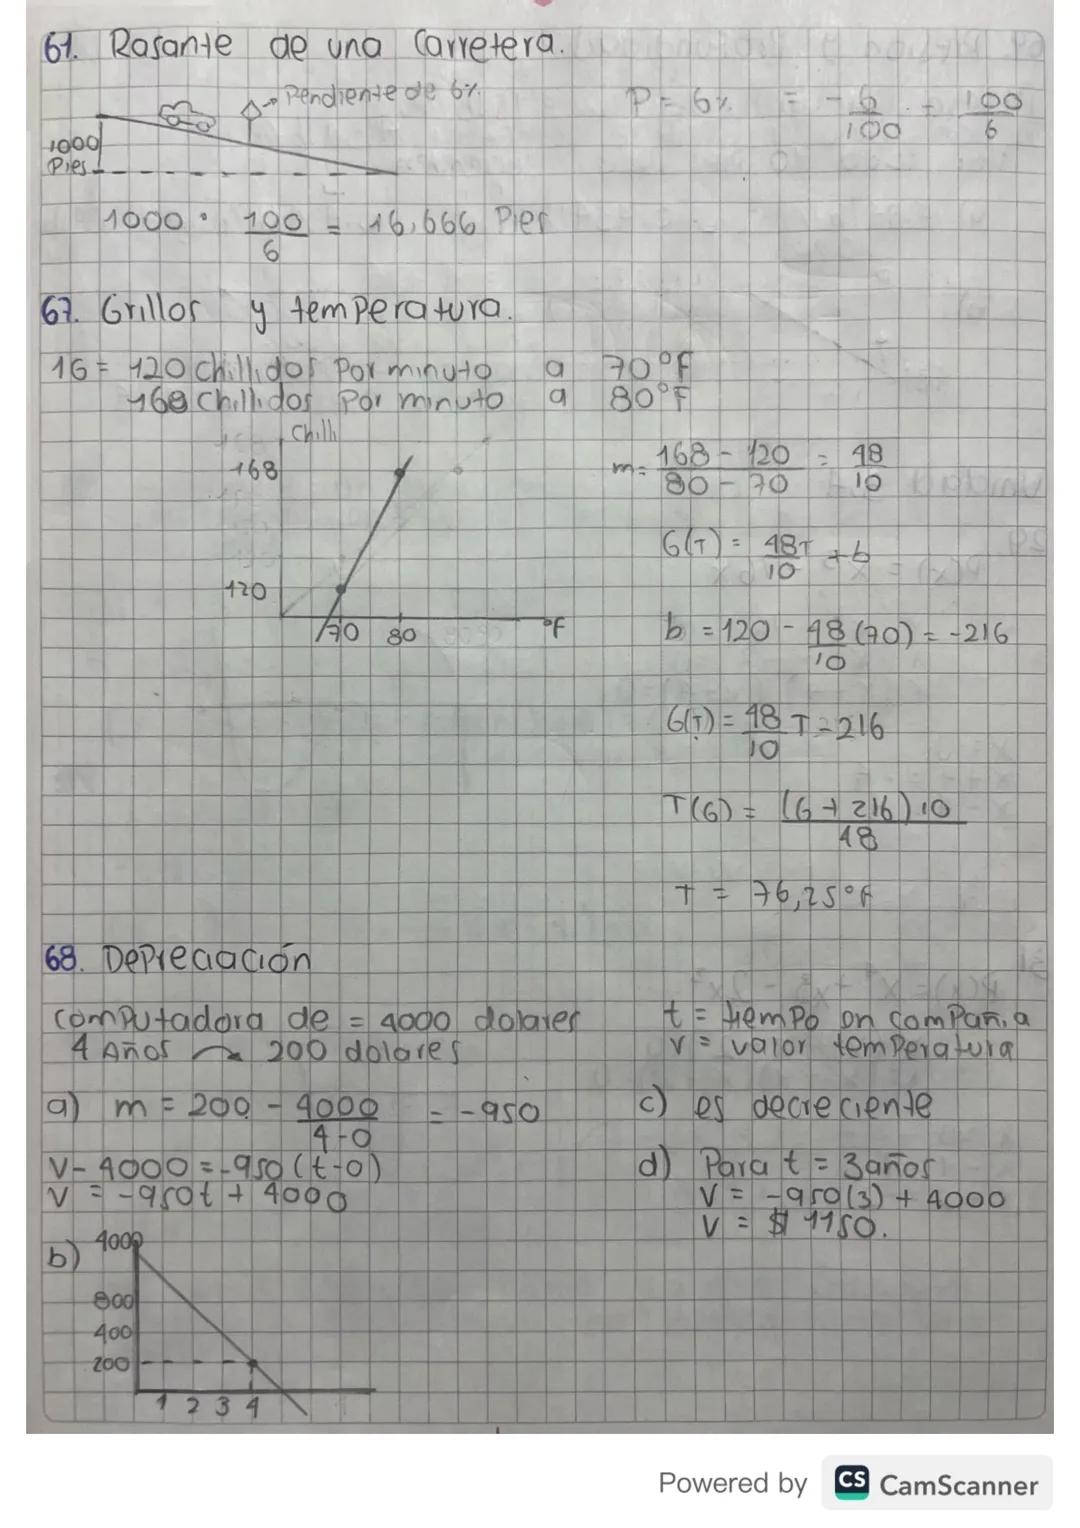 61. Rasante de una Carretera.
Pendiente de 6%.
P = 6% = - 6/100 = 100/6
1000 Pies
1000 · 100/6 = 16,666 Pies
67. Grillos y temperatura.
1G = 120 Chillidos Por minuto a 70°F
168 Chillidos Por minuto a 80°F
Chilli
168
120
70 80 °F
m = 168 - 120 / 80 - 70 = 48/10
G(T) = 48T/10 + b
b = 120 - 48/10 (70) = -216
G(T) = 48/10 T - 216
T(G) = (G + 216) 10 / 48
T = 76,25°F
68. Depreciación
Computadora de = 4000 dolares
4 Años → 200 dolares
t = tiempo en compañia
v = valor temperatura
a) m = 200 - 4000 / 4-0 = -950
V - 4000 = -950 (t-0)
V = -950t + 4000
b) 4000
800
400
200
1 2 3 4
c) es decreciente
d) Para t = 3 años
V = -950(3) + 4000
V = $ 1150.
Powered by CS CamScanner